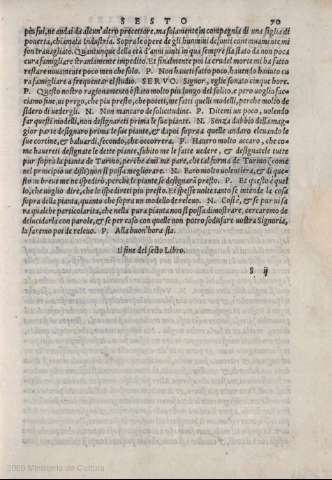 SESTO 70
più ful, ne andai da alcun'altro precettore, ma solamente in compagnia di una figlia di
povertà, chiamata Industria. Sopra le opere de gli huomini defunti continuamente mi
son travagliato. Quantunque dalla età d'anni uinti in qua sempre sia stato da non poca
cura famigliare stranamente impedito. Et finalmente poi la crudel morte mi ha fatto
restare nouamente poco men che solo. P. Non hauete fatto poco, hauendo hauuto cu
ra famigliare a frequentar el studio. SERVO. Signor, egli è sonato cinque hore.
P. Questo nostro ragionamento è stato molto piu longo del solito, e pero uoglio fac-
ciamo fine, ui prego, che piu presto, che potete, me fatti quelli modelli, perche molto de
sidero di intergli. N. Non mancarò de sollicitudine. P. Ditemi un poco, uolendo
far questi modelli, non dessignareti prima le sue piante. N. Senza dubbio della mag-
gior parte designaro prima le sue piante, & dapoi sopra a quelle andaro eleuando le
sue cortine, & baluardi, secondo, che occorrerà. P. Haurò molto accaro, che co
me hauereti designate le dette piante, subito me le fatte uedere, & designatele tutte
pur sopra la pianta de Turino, perche a mi me pare, che tal forma de Turino (come
nel principio ue dissi) non si possa megliorare. N. Farò molto uolentiera, & di que-
sto in breue ue ne ispedirò, perche le piante se designarà presto. P. Et questo è quel
lo, che uoglio dire, che le ispedireti piu presto. Et spesse uolte tanto se intende le cose
sopra della pianta, quanto che sopra un modello de releuo. N. Cosi è, & se pur ui sa
ra qualche particolarita, che nella pura pianta non si possa dimostrare, cercaremo de
delucidarla con parole, & se per caso con quelle non potrò sodisfare uostra Signoria,
la faremo poi de releuo. P. Alla buon'hora sia.
Il fine del sesto Libro.
S ij
2009 Ministerio de Cultura